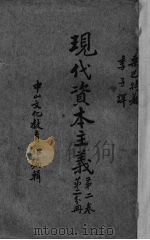 桑巴特著
季子譯
現代資本主義
第二卷
第二分冊
中山文化教育館編輯